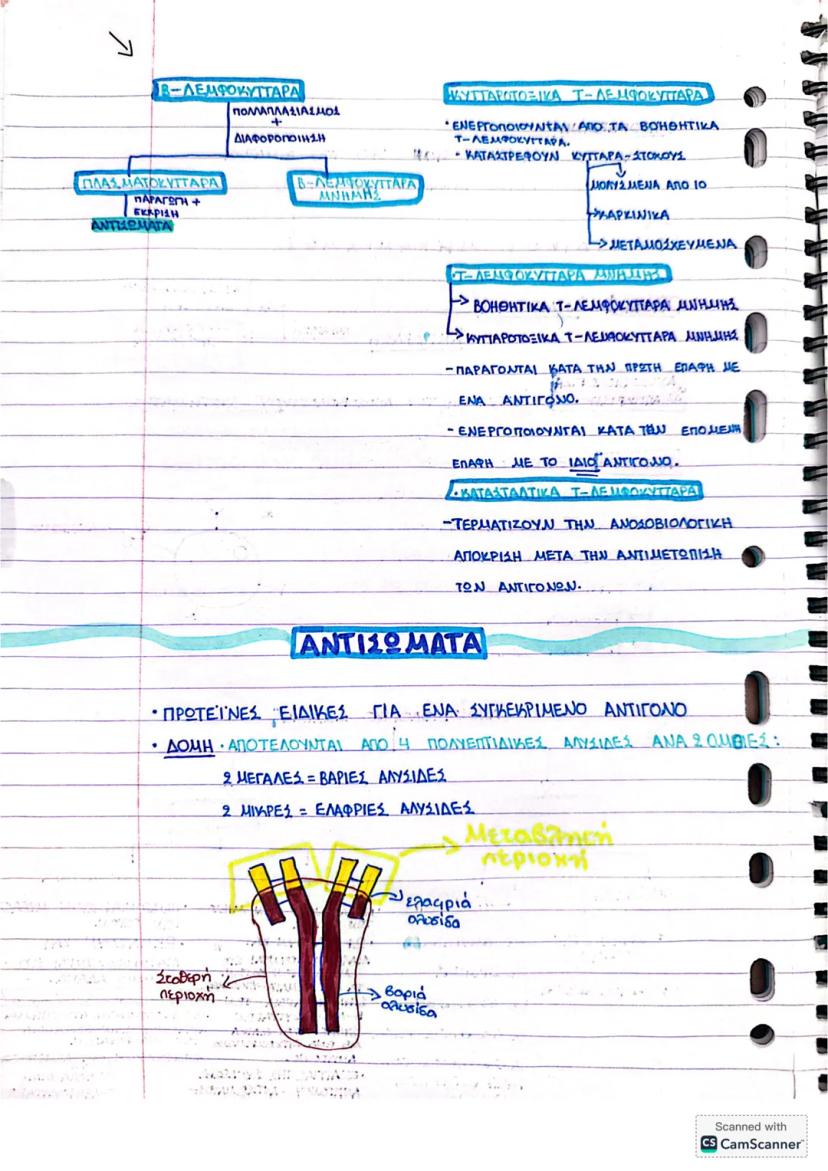 Β-ΛΕΜΦΟΚΥΤΤΑΡΑ
ΠΟΛΛΑΠΛΑΣΙΑΣΜΟΣ
+
ΔΙΑΦΟΡΟΠΟΙΗΣΗ
ΠΛΑΣΜΑΤΟΚΥΤΤΑΡΑ
ΠΑΡΑΓΩΓΗ +
ΕΚΚΡΙΣΗ
ΑΝΤΙΣΩΜΑΤΑ
Β-ΛΕΜΦΟΚΥΤΤΑΡΑ
ΜΝΗΜΗΣ
ΚΥΤΤΑΡΟΤΟΞΙΚΑ Τ-ΛΕΜΦΟΚΥΤΤΑΡΑ
• ΕΝΕΡΓΟΠΟΙΟΥΝΤΑΙ ΑΠΟ ΤΑ ΒΟΗΘΗΤΙΚΑ
Τ-ΛΕΜΦΟΚΥΤΤΑΡΑ.
• ΚΑΤΑΣΤΡΕΦΟΥΝ ΚΥΤΤΑΡΑ-ΣΤΟΧΟΥΣ
ΜΟΛΥΣΜΕΝΑ ΑΠΟ ΙΟ
ΚΑΡΚΙΝΙΚΑ
ΜΕΤΑΜΟΣΧΕΥΜΕΝΑ
Τ-ΛΕΜΦΟΚΥΤΤΑΡΑ ΜΝΗΜΗΣ
ΒΟΗΘΗΤΙΚΑ Τ-ΛΕΜΦΟΚΥΤΤΑΡΑ ΜΝΗΜΗΣ
ΚΥΤΤΑΡΟΤΟΞΙΚΑ Τ-ΛΕΜΦΟΚΥΤΤΑΡΑ ΜΝΗΜΗΣ
- ΠΑΡΑΓΟΝΤΑΙ ΚΑΤΑ ΤΗΝ ΠΡΩΤΗ ΕΠΑΦΗ ΜΕ
ΕΝΑ ΑΝΤΙΓΟΝΟ.
- ΕΝΕΡΓΟΠΟΙΟΥΝΤΑΙ ΚΑΤΑ ΤΗΝ ΕΠΟΜΕΝΗ
ΕΠΑΦΗ ΜΕ ΤΟ ΙΔΙΟ ΑΝΤΙΓΟΝΟ.
• ΚΑΤΑΣΤΑΛΤΙΚΑ Τ-ΛΕΜΦΟΚΥΤΤΑΡΑ
- ΤΕΡΜΑΤΙΖΟΥΝ ΤΗΝ ΑΝΟΣΟΒΙΟΛΟΓΙΚΗ
ΑΠΟΚΡΙΣΗ ΜΕΤΑ ΤΗΝ ΑΝΤΙΜΕΤΩΠΙΣΗ
ΤΩΝ ΑΝΤΙΓΟΝΩΝ.
ΑΝΤΙΣΩΜΑΤΑ
• ΠΡΩΤΕΪΝΕΣ ΕΙΔΙΚΕΣ ΓΙΑ ΕΝΑ ΣΥΓΚΕΚΡΙΜΕΝΟ ΑΝΤΙΓΟΝΟ
• ΔΟΜΗ • ΑΠΟΤΕΛΟΥΝΤΑΙ ΑΠΟ 4 ΠΟΛΥΕΠΤΙΔΙΚΕΣ ΑΛΥΣΙΔΕΣ ΑΝΑ 2 ΟΜΟΙΕΣ:
2 ΜΕΓΑΛΕΣ = ΒΑΡΙΕΣ ΑΛΥΣΙΔΕΣ
2 ΜΙΚΡΕΣ = ΕΛΑΦΡΙΕΣ ΑΛΥΣΙΔΕΣ
Μεταβλητή
περιοχή
ελαφριά
αλυσίδα
Σταθερή
περιοχή
βαριά
αλυσίδα
Scanned with
CS CamScanner